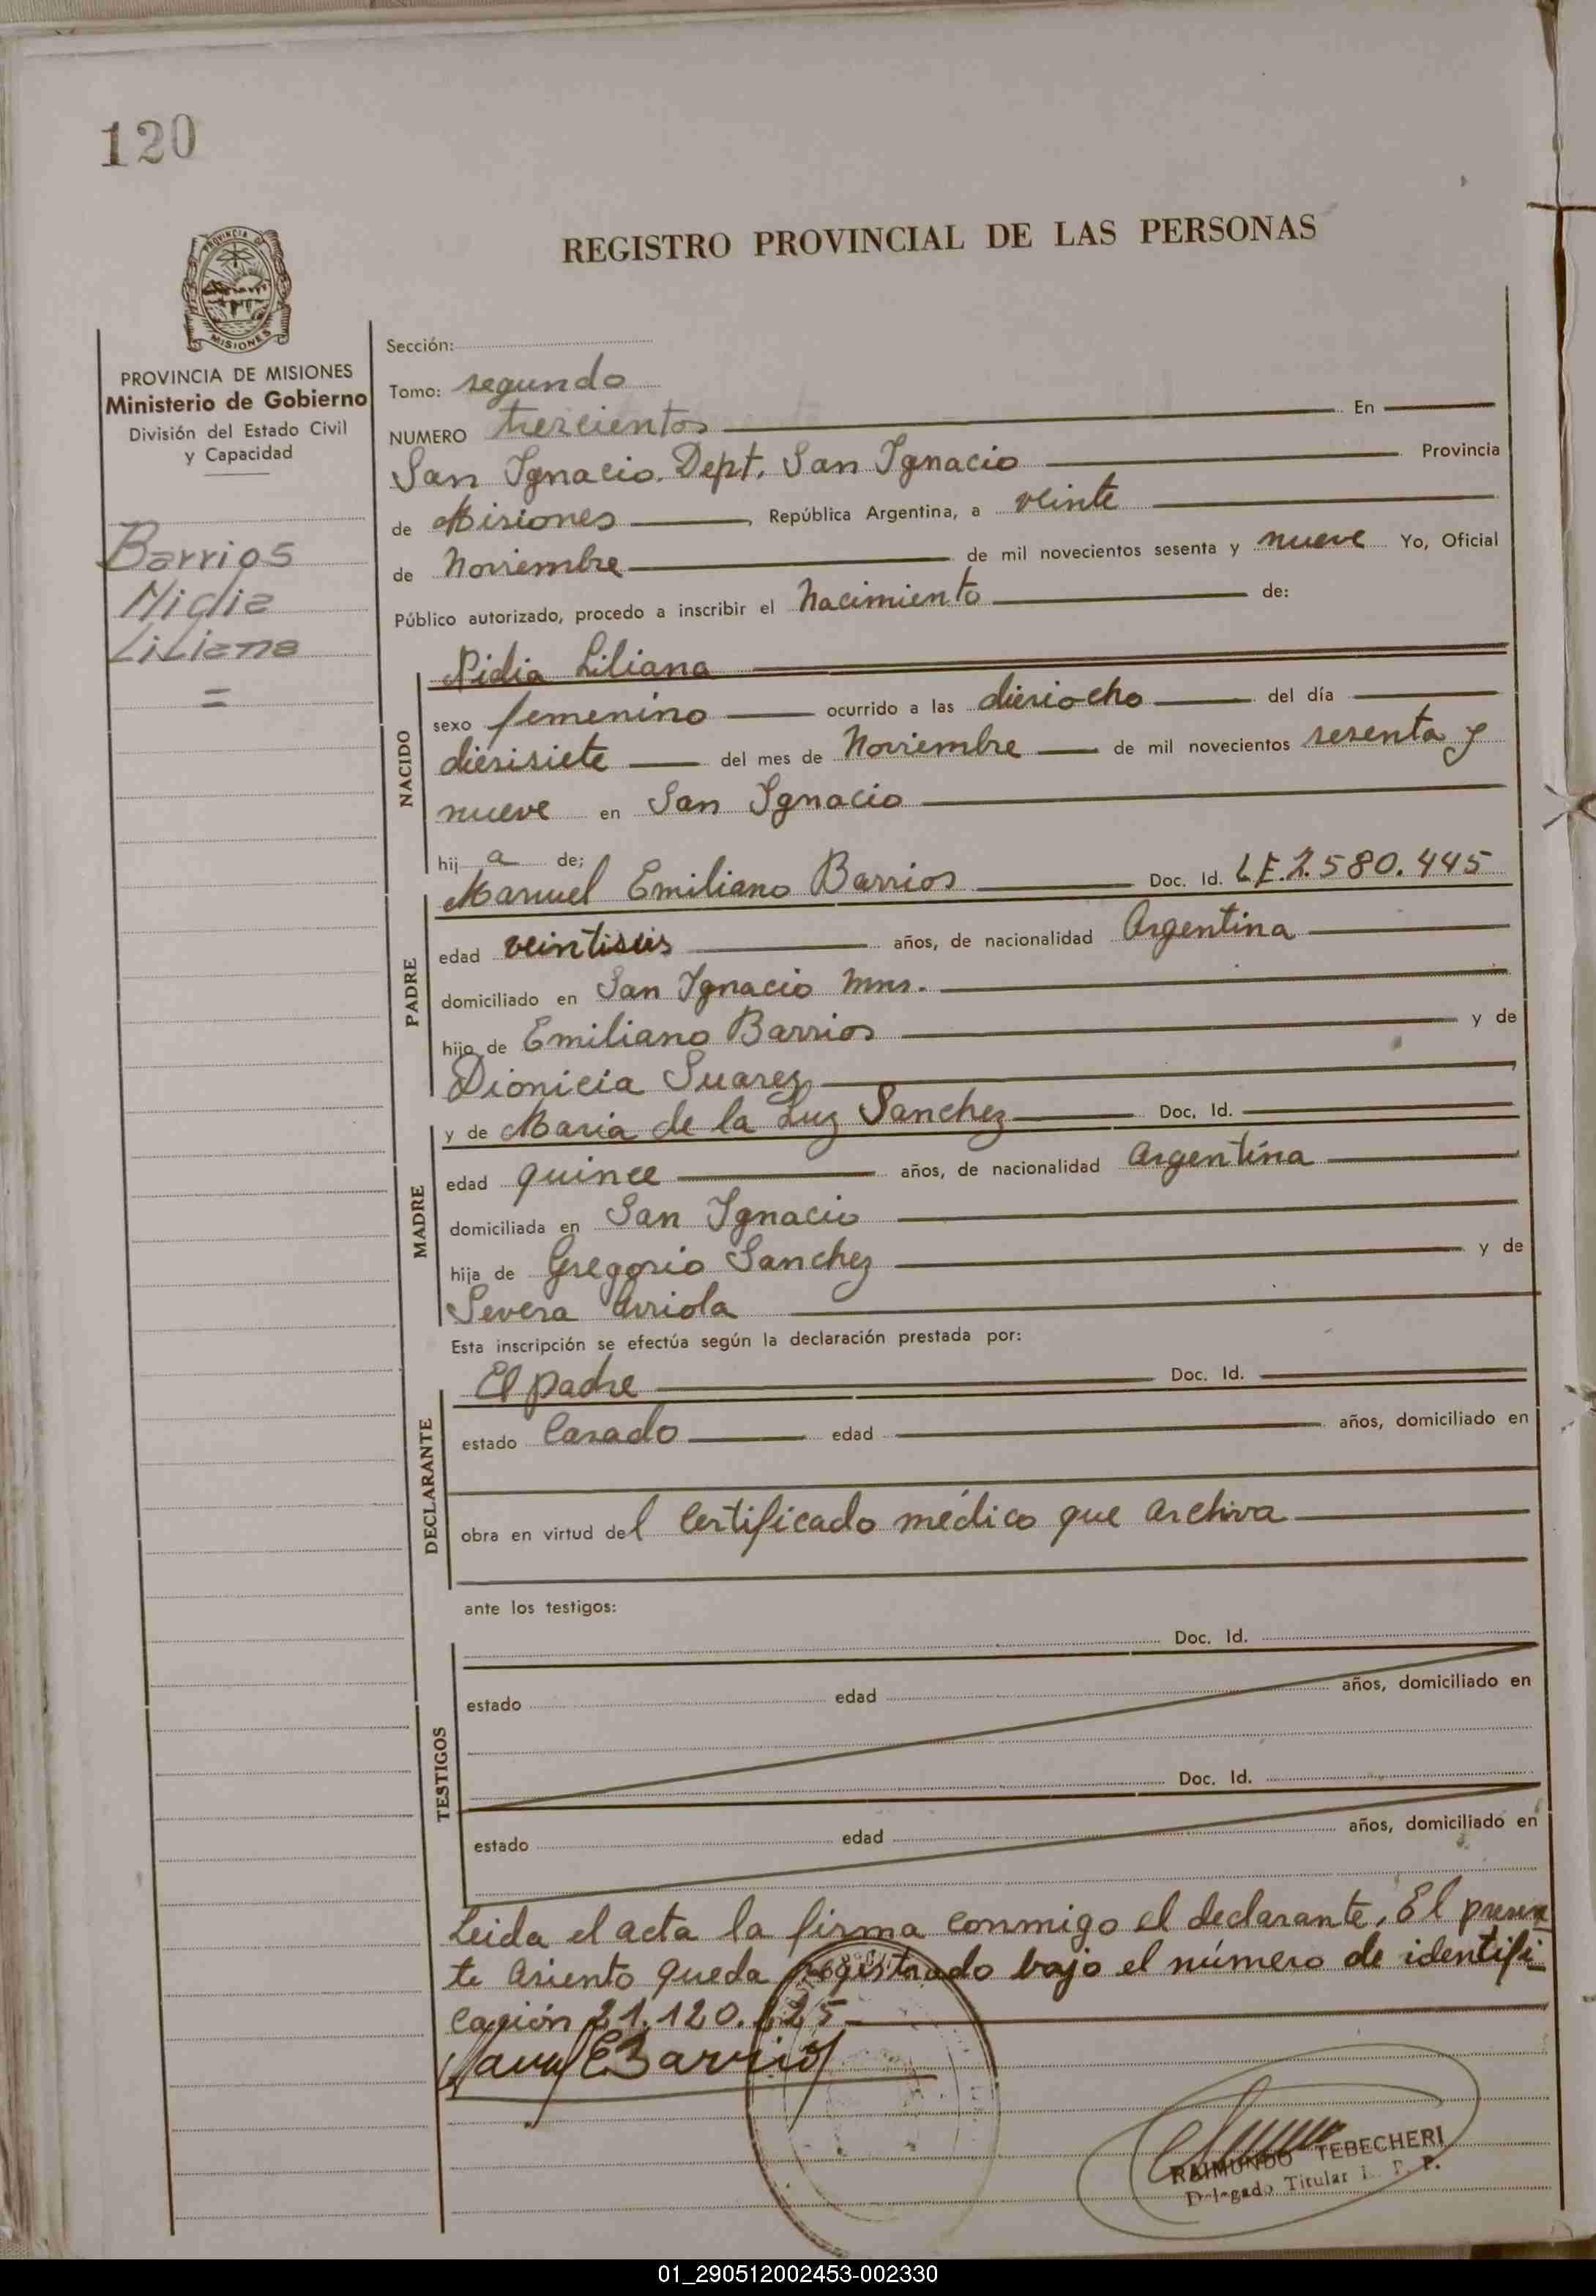 120
REGISTRO PROVINCIAL DE LAS PERSONAS
PROVINCIA DE MISIONES
PROVINCIA DE MISIONES
Ministerio de Gobierno
División del Estado Civil
y Capacidad
Barrios
Nidia
Liliana
=
Sección:
Tomo: segundo
NUMERO trescientos En
San Ignacio. Dept. San Ignacio Provincia
de Misiones República Argentina, a veinte
de Noviembre de mil novecientos sesenta y nueve Yo, Oficial
Público autorizado, procedo a inscribir el Nacimiento de:
NACIDO
Nidia Liliana
sexo femenino ocurrido a las diesiocho del día
diesisiete del mes de Noviembre de mil novecientos sesenta y
nueve en San Ignacio
hij a de;
PADRE
Manuel Emiliano Barrios Doc. Id. L.E.7.580.445
edad veintiseis años, de nacionalidad Argentina
domiciliado en San Ignacio Mns.
hijo de Emiliano Barrios y de
Dionicia Suarez
MADRE
y de Maria de la Luz Sanchez Doc. Id.
edad quince años, de nacionalidad Argentina
domiciliada en San Ignacio
hija de Gregorio Sanchez y de
Severa Arriola
Esta inscripción se efectúa según la declaración prestada por:
DECLARANTE
El padre Doc. Id.
estado Casado edad años, domiciliado en
obra en virtud del Certificado médico que archiva
ante los testigos:
TESTIGOS
Doc. Id.
estado edad años, domiciliado en
Doc. Id.
estado edad años, domiciliado en
Leida el acta la firma conmigo el declarante. El presen
te asiento queda registrado bajo el número de identifi
cación 21.120.
Barrios
RAIMUNDO TEBECHERI
Delegado Titular
01_290512002453-002330